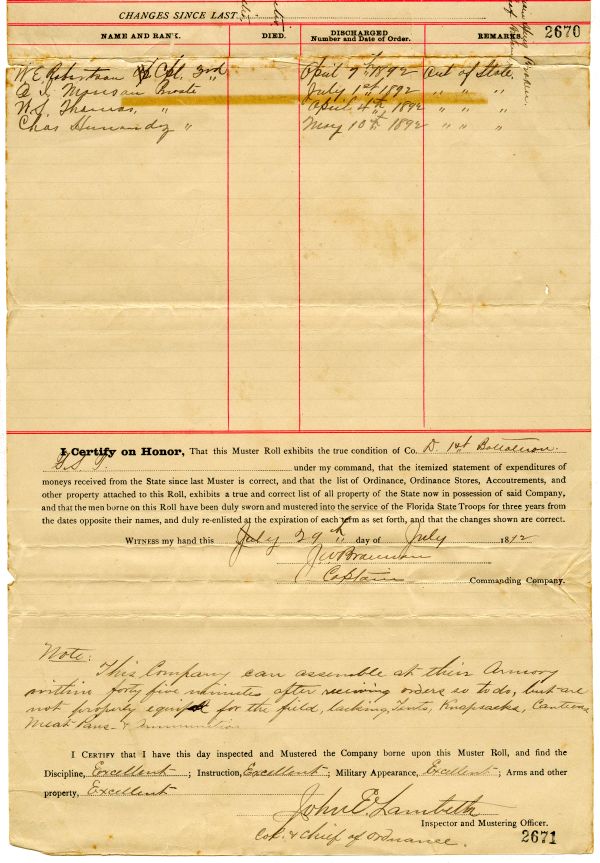 CHANGES SINCE LAST
NAME AND RANK. DIED. DISCHARGED Number and Date of Order. REMARKS. 2670
W. E. Robertson Cpl. 3rd April 9th 1892 Out of State.
Morgan Private July 1st 1892 " " "
W. J. Thomas, " April 4th 1892 " " "
Chas Hernandz " May 10th 1892 " " "
I Certify on Honor, That this Muster Roll exhibits the true condition of Co. D. 1st Battalion.
under my command, that the itemized statement of expenditures of
moneys received from the State since last Muster is correct, and that the list of Ordinance, Ordinance Stores, Accoutrements, and
other property attached to this Roll, exhibits a true and correct list of all property of the State now in possession of said Company,
and that the men borne on this Roll have been duly sworn and mustered into the service of the Florida State Troops for three years from
the dates opposite their names, and duly re-enlisted at the expiration of each term as set forth, and that the changes shown are correct.
WITNESS my hand this July 29th day of July 1892
J. W. Brannan
Captain Commanding Company.
Note:
This Company can assemble at their Armory
within forty five minutes after receiving orders so to do, but are
not properly equipt for the field, lacking, Tents, Knapsacks, Canteens
Meat Pans & Ammunition
I CERTIFY that I have this day inspected and Mustered the Company borne upon this Muster Roll, and find the
Discipline, Excellent; Instruction, Excellent; Military Appearance, Excellent; Arms and other
property, Excellent
John E Lambeth
Inspector and Mustering Officer.
Col. & Chief of Ordnance. 2671